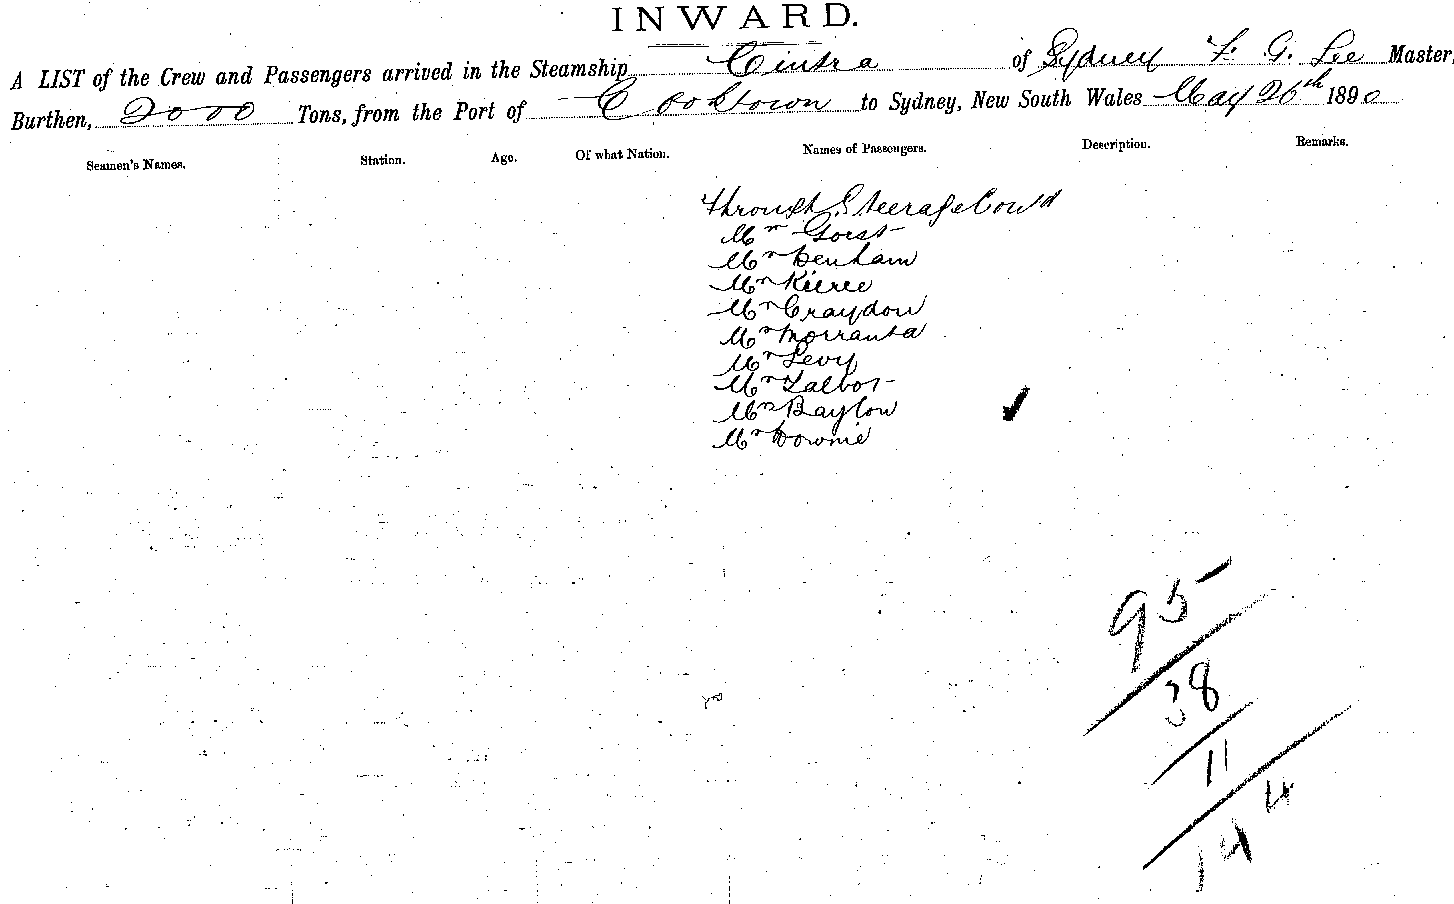 INWARD.
A LIST of the Crew and Passengers arrived in the Steamship Cintra of Sydney F. G. Lee Master,
Burthen, 2000 Tons, from the Port of Cooktown to Sydney, New South Wales May 26th 1890
Seamen's Names. Station. Age. Of what Nation. Names of Passengers. Description. Remarks.
Through Steerage Contd
Mr Gorst
Mr Denham
Mr
Mr Craydon
Mr Morranta
Mr Levy
Mr Talbot
Mr Baylon
Mr Downie
95
38
11
144